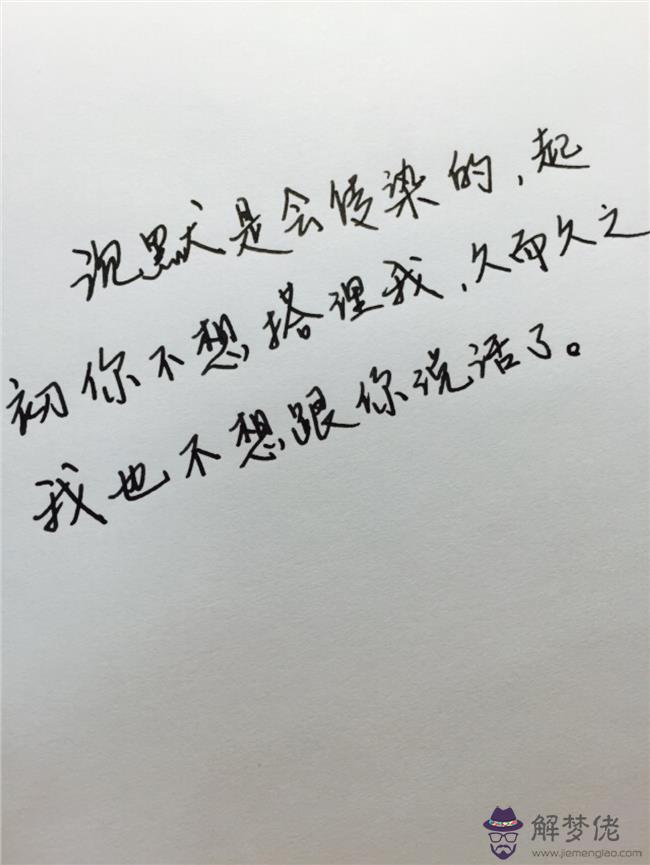 沉默是会传染的，起
初你不想搭理我，久而久之
我也不想跟你说话了。
解梦佬
www.jiemenglao.com